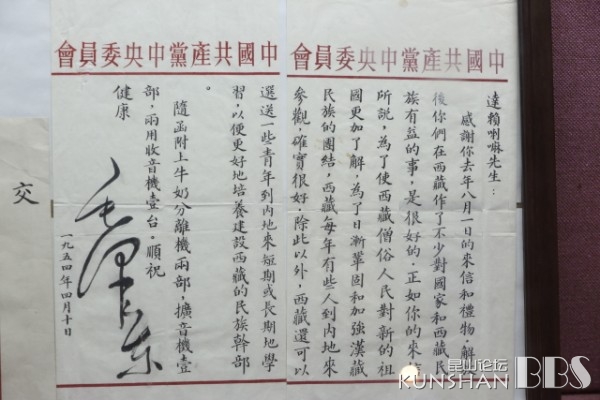 中國共產黨中央委員會
達賴喇嘛先生：
感謝你去年八月一日的來信和禮物，解放
後你們在西藏作了不少對國家和西藏民
族有益的事，是很好的．正如你的來
所說，為了使西藏僧俗人民對新的祖
國更加了解，為了日漸鞏固和加強漢藏
民族的團結，西藏每年有些人到內地來
參觀，確實很好．除此以外，西藏還可以
中國共產黨中央委員會
選送一些青年到內地來短期或長期地學
習，以便更好地培養建設西藏的民族幹部
。
隨函附上牛奶分離機兩部，擴音機壹
部，兩用收音機壹台．順祝
健康
毛澤東
一九五四年四月十日
交
昆山论坛
KUNSHAN BBS